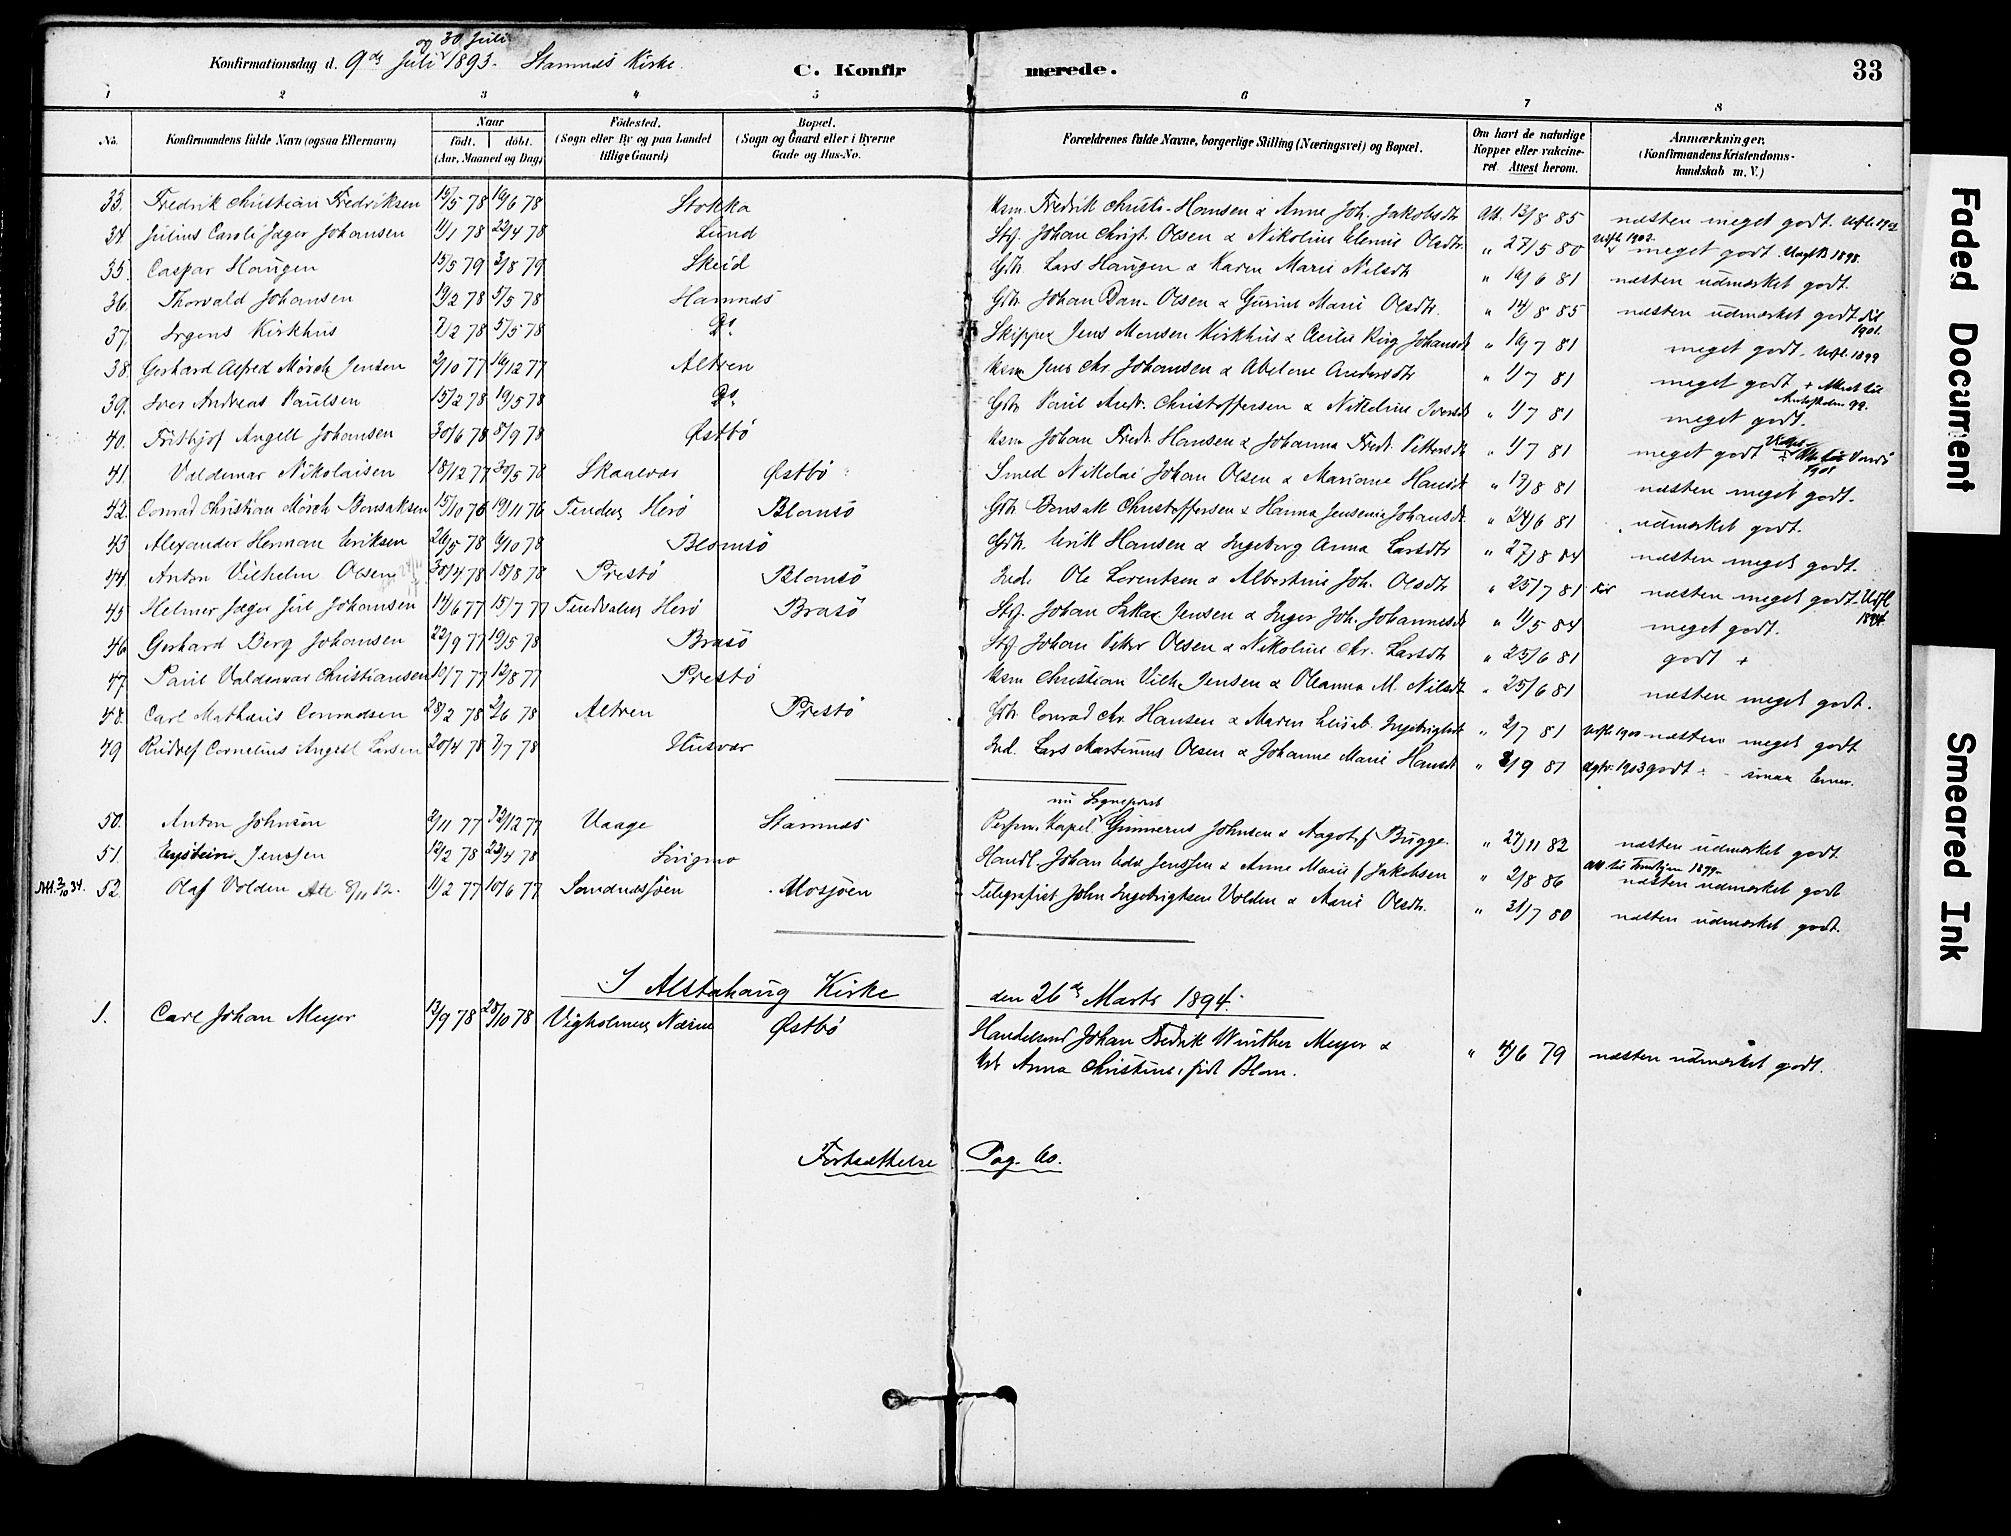 og 30 Juli
Konfirmationsdag d. 9de Juli 1893. Stamnes Kirke. C. Konfirmerede. 33
1 2 3 4 5 6 7 8
No. Konfirmandens fulde Navn (ogsaa Efternavn) Naar født. døbt. (Aar, Maaned og Dag) Fødested. (Sogn eller By og paa Landet tillige Gaard) Bopæl. (Sogn og Gaard eller i Byerne Gade og Hus-No. Forældrenes fulde Navne, borgerlige Stilling (Næringsvei) og Bopæl. Om havt de naturlige Kopper eller vakcineret. Attest herom. Anmærkninger. (Konfirmandens Kristendomskundskab m. V.)
33. Fredrik Christian Fredriksen 19/5 78 16/6 78 Stokka Hsm. Fredrik Christ. Hansen & Anne Joh. Jakobsdtr Att. 13/8 85 næsten meget godt.
34 Julius Caroli Jæger Johansen 11/1 78 22/4 78 Lund Johan Christ. Olsen & Nikoline Olsdtr " 27/5 80 meget godt
35. Caspar Haugen 15/5 79 3/8 79 Skeid Gbr. Lars Haugen & Karen Marie Nilsdtr " 16/6 81 næsten udmærket godt.
36 Thorvald Johansen 19/2 78 5/5 78 Hamnes Gbr. Johan Dan. Olsen & Gurine Marie Olsdtr. " 14/8 85 næsten udmærket godt
37. Jrgens Kirkhus 7/2 78 5/5 78 Do. Skipper Jens Monsen Kirkhus & Johansdtr " 16/7 81 meget godt. Utfl. 1899
38 Gerhard Alfred Mörch Jensen 2/10 77 16/12 77 Altren Hsm Jens Chr. Johansen & Abelone Andersdtr " 1/7 81 meget godt +
39. Iver Andreas Paulsen 15/2 78 19/5 78 Do. Gbr. Paul Andr. Christoffersen & Nikoline Iversdtr " 1/7 81 meget godt.
40. Frithjof Angell Johansen 30/6 78 8/9 78 Østbö Hsm Johan Fredr. Hansen & Johanna Fredr. Pettersdtr " 1/7 81 meget godt
41. Valdemar Nikolaisen 18/12 77 30/5 78 Skaalvær Østbö Smed Nikolai Johan Olsen & Mariane Hansdtr " 17/8 81 næsten meget godt.
42. Conrad Christian Mörch Bonsaksen 15/10 76 19/11 76 Herö Blomsö Gbr. Bonsak Christoffersen & Hanna Jensenia Johansdtr. " 24/6 81 udmærket godt.
43 Alexander Herman Eriksen 26/5 78 6/10 78 Blomsö Gbr. Erik Hansen & Ingeborg Anna Larsdtr " 27/8 84 næsten meget godt.
44. Anton Vilhelm Olsen 30/4 78 18/8 78 Prestö Blomsö Ind. Ole Lorentsen & Albertine Joh. Olsdtr " 25/7 81 næsten meget godt. Utfl 1894
45 Helmer Jæger Juel Johansen 14/6 77 15/7 77 Herö Brasö Johan Jensen & Inger Joh. Johannesdtr " 11/5 84 meget godt.
46 Gerhard Berg Johansen 22/9 77 19/5 78 Brasö Johan Peter Olsen & Nikoline Chr. Larsdtr " 25/6 81 godt +
47. Paul Valdemar Christiansen 10/7 77 12/8 77 Prestö Hsm Christian Vilh. Jensen & Oleanna M. Nilsdtr " 25/6 81 næsten meget godt.
48. Carl Mathæus Conradsen 28/2 78 2/6 78 Altren Prestö Gbr Conrad Chr. Hansen & Maren Elisab. Ingebrigtsdtr " 2/7 81 Utfl. 1900 næsten meget godt
49 Rudolf Cornelius Angell Larsen 20/4 78 7/7 78 Husvær Ind. Lars Martinus Olsen & Johanne Marie Hansdtr " 3/9 81 1903 godt. smaa Evner.
50. Anton Johnson 2/11 77 /12 77 Uaage Stamnes Person. Kapel. nu Sogneprest Gunnerus Johnson & Aagot f. Bugge. " 27/11 82 næsten udmærket godt
51. Eystein Jenssen 12/2 78 23/4 78 Sörigmo Handl. Johan Edv. Jenssen & Anne Marie f Jakobsen " 2/8 86 1899 næsten udmærket godt
Att. 2/10 34. 52 Olaf Volden Att. 8/11 12. 11/2 77 10/6 77 Sandnessjöen Mosjöen Telegrafist John Ingebrigtsen Volden & Marie Olsdtr. " 31/7 80 næsten udmærket godt.
I Alstahaug Kirke den 26de Marts 1894.
1. Carl Johan Meyer 13/9 78 20/10 78 Vigholmen, Næsne Østbö Handelsmd Johan Fredrik Winther Meyer & " 4/6 79 næsten udmærket godt.
Anna Christine, född Blom.
Fortsættelse Pag. 60.
Faded Document
Smeared Ink